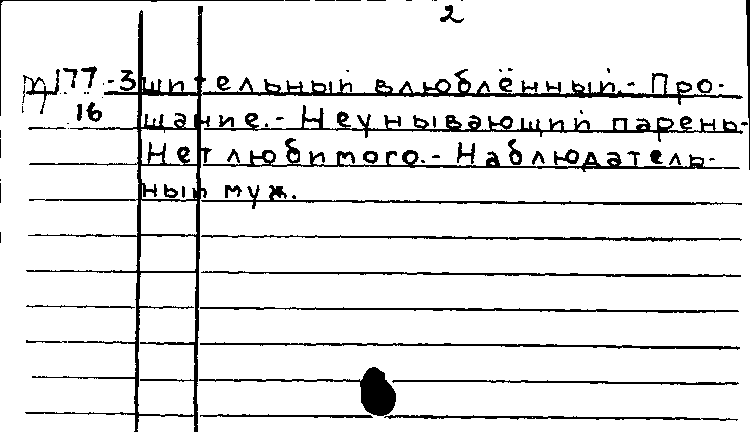 2
М177-3 шительный влюблённый.- Про-
16 щание.- Неунывающий парень.-
Нет любимого.- Наблюдатель-
ный муж.